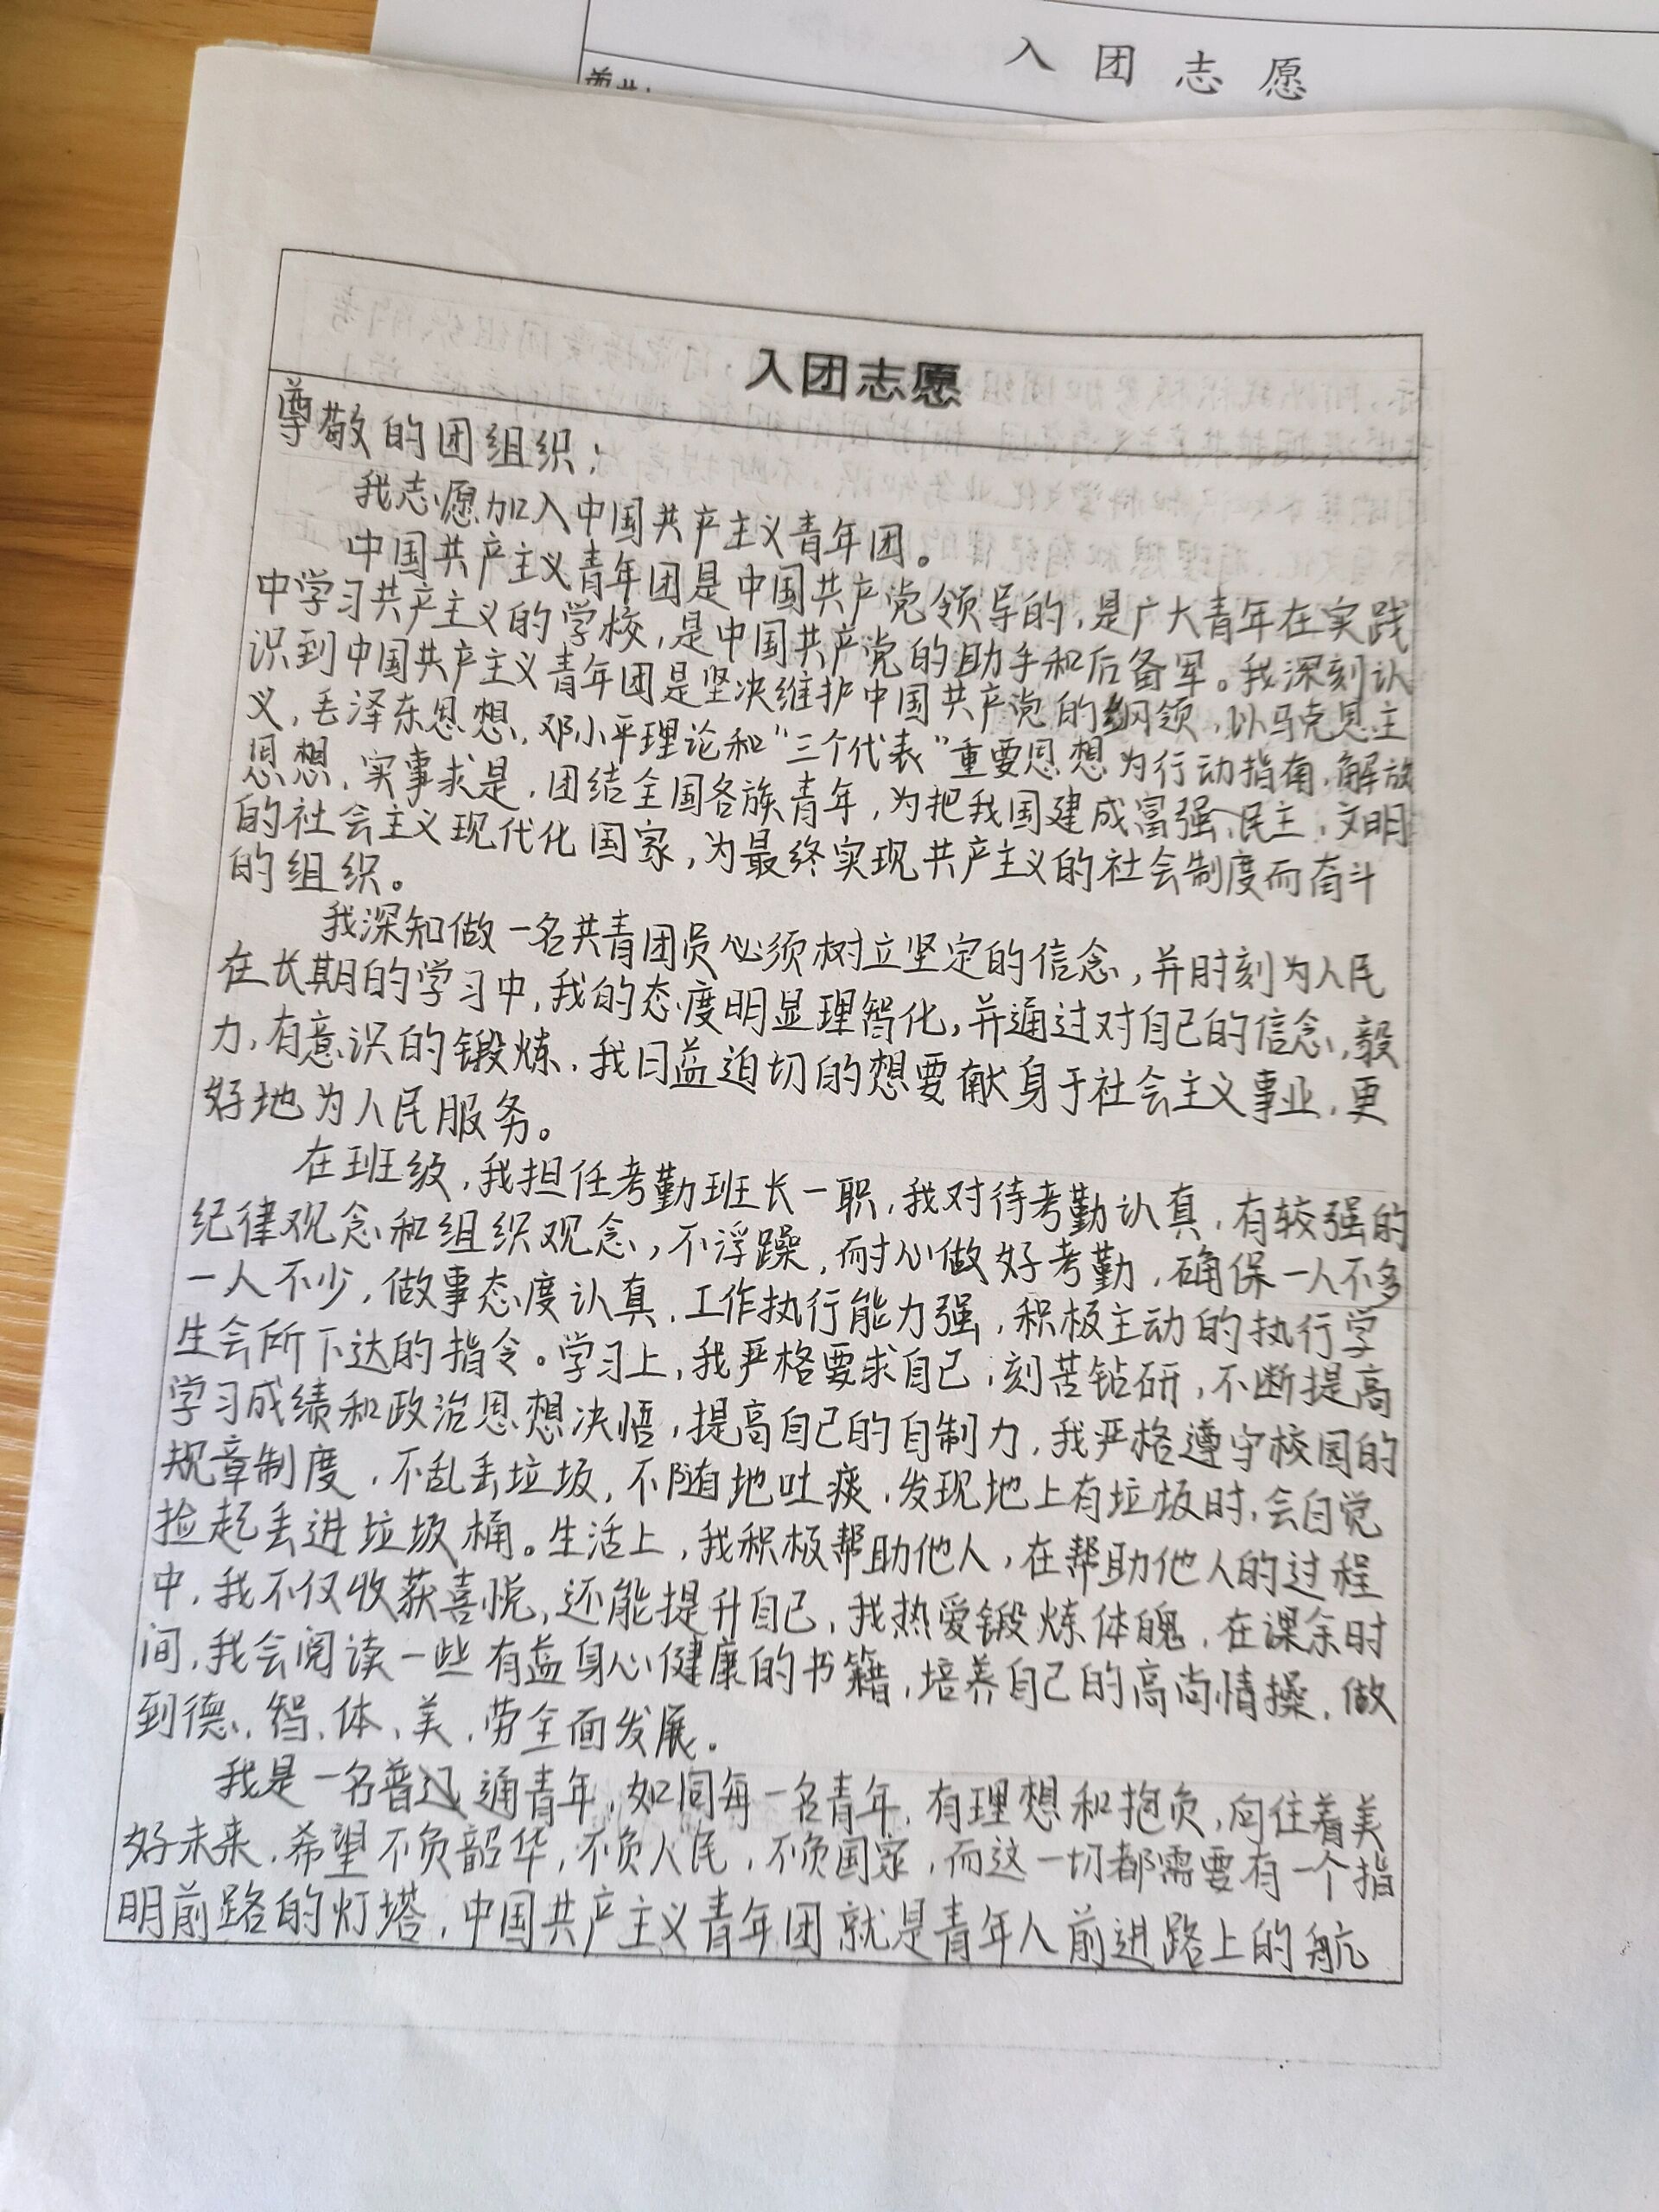 入团志愿
入团志愿
尊敬的团组织：
我志愿加入中国共产主义青年团。
中国共产主义青年团是中国共产党领导的，是广大青年在实践
中学习共产主义的学校，是中国共产党的助手和后备军。我深刻认
识到中国共产主义青年团是坚决维护中国共产党的纲领，以马克思主
义，毛泽东思想，邓小平理论和“三个代表”重要思想为行动指南，解放
思想，实事求是，团结全国各族青年，为把我国建成富强、民主、文明
的社会主义现代化国家，为最终实现共产主义的社会制度而奋斗
的组织。
我深知做一名共青团员必须树立坚定的信念，并时刻为人民
在长期的学习中，我的态度明显理智化，并通过对自己的信念，毅
力，有意识的锻炼，我日益迫切的想要献身于社会主义事业，更
好地为人民服务。
在班级，我担任考勤班长一职，我对待考勤认真，有较强的
纪律观念和组织观念，不浮躁，耐心做好考勤，确保一人不多
一人不少，做事态度认真，工作执行能力强，积极主动的执行学
生会所下达的指令。学习上，我严格要求自己，刻苦钻研，不断提高
学习成绩和政治思想决悟，提高自己的自制力，我严格遵守校园的
规章制度，不乱丢垃圾，不随地吐痰，发现地上有垃圾时，会自觉
捡起丢进垃圾桶。生活上，我积极帮助他人，在帮助他人的过程
中，我不仅收获喜悦，还能提升自己，我热爱锻炼体魄，在课余时
间，我会阅读一些有益身心健康的书籍，培养自己的高尚情操，做
到德、智、体、美、劳全面发展。
我是一名普通青年，如同每一名青年，有理想和抱负，向住着美
好未来，希望不负韶华，不负人民，不负国家，而这一切都需要有一个指
明前路的灯塔，中国共产主义青年团就是青年人前进路上的航